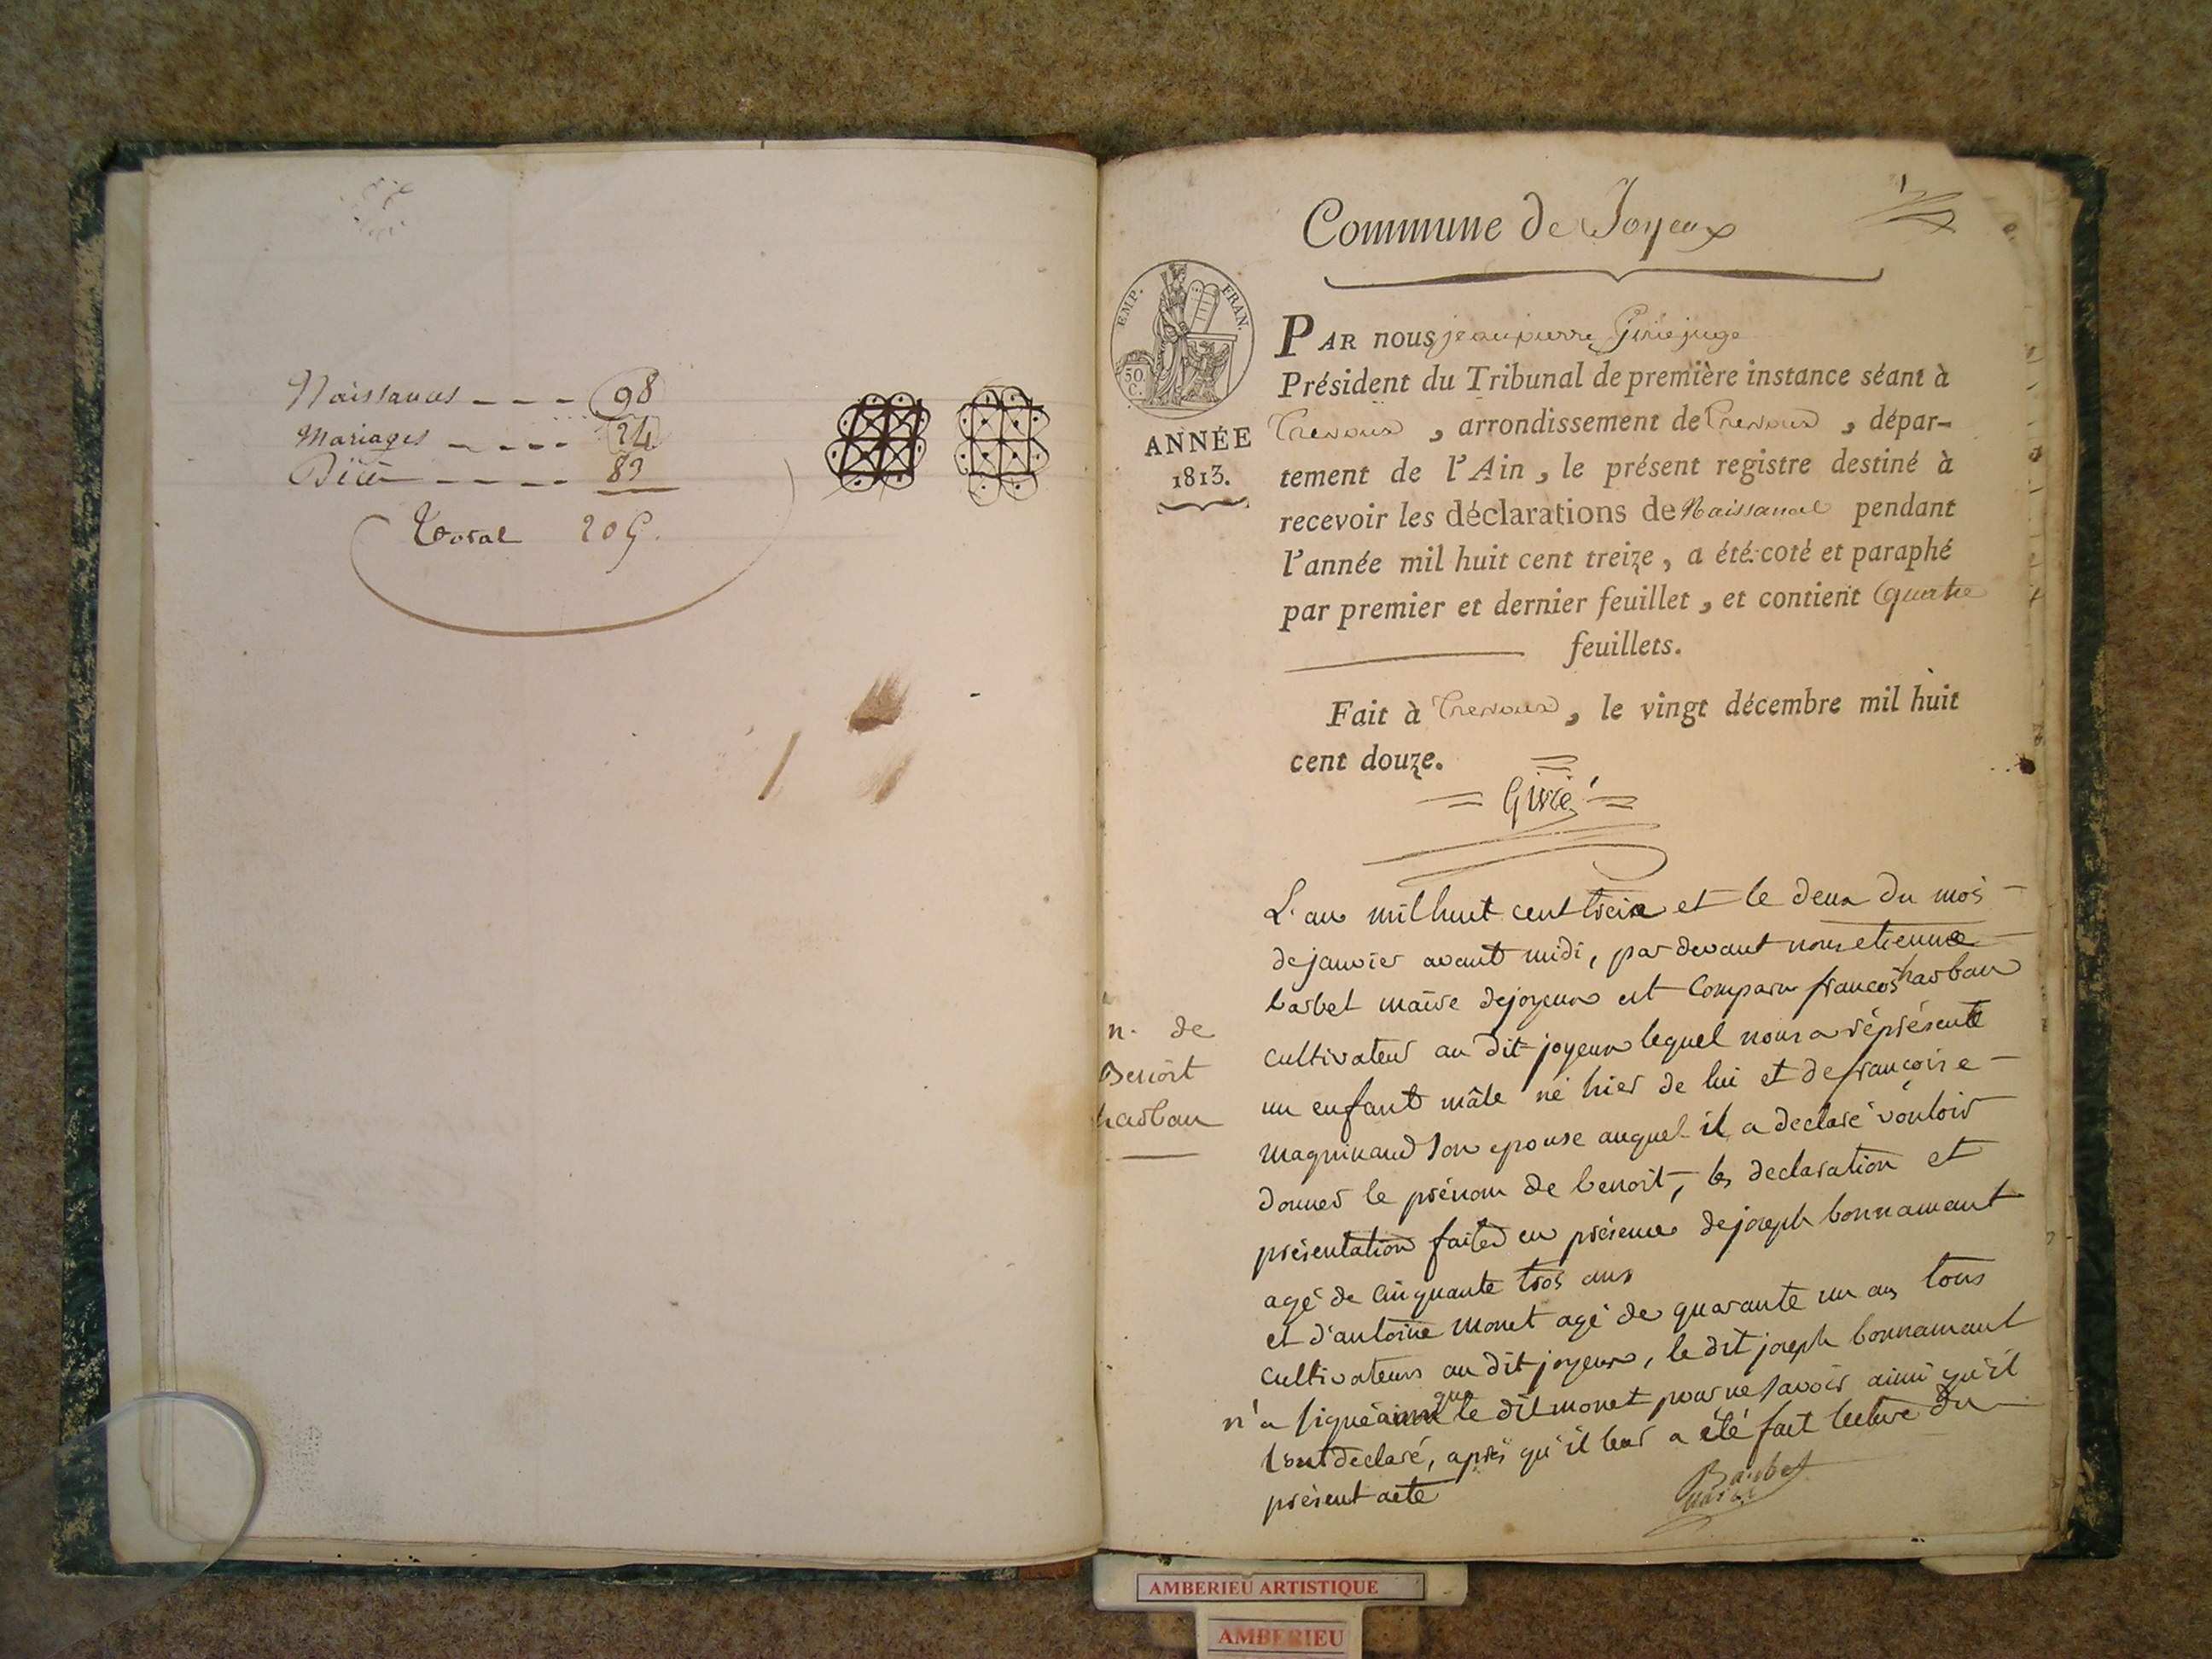 Naissances - - - 98
Mariages - - - - 24
Décès - - - - - 83
Total 205.
Commune de Joyeux
1
EMP. FRAN.
50 C.
ANNÉE
1813.
PAR nous jean pierre Girié juge
Président du Tribunal de première instance séant à
Trevoux, arrondissement de Trevoux, dépar-
tement de l'Ain, le présent registre destiné à
recevoir les déclarations de Naissance pendant
l'année mil huit cent treize, a été coté et paraphé
par premier et dernier feuillet, et contient quatre
feuillets.
Fait à Trevoux, le vingt décembre mil huit
cent douze.
Girié
n. de
Benoit
harban
L'an mil huit cent treize et le deux du mois
de janvier avant midi, par devant nous etienne
barbet maire de joyeux est comparu francois harban
cultivateur au dit joyeux lequel nous a réprésenté
un enfant mâle né hier de lui et de françoise
magninand son epouse auquel il a declaré vouloir
donner le prénom de benoit, les declaration et
présentation faites en présence de joseph bonnamant
agé de cinquante trois ans
et d'antoine monet agé de quarante un ans tous
cultivateurs au dit joyeux, le dit joseph bonnamant
n'a signé ainsi que le dit monet pour ne savoir ainsi qu'il
l'ont declaré, après qu'il leur a été fait lecture du
présent acte
Barbet
maire
AMBERIEU ARTISTIQUE
AMBERIEU